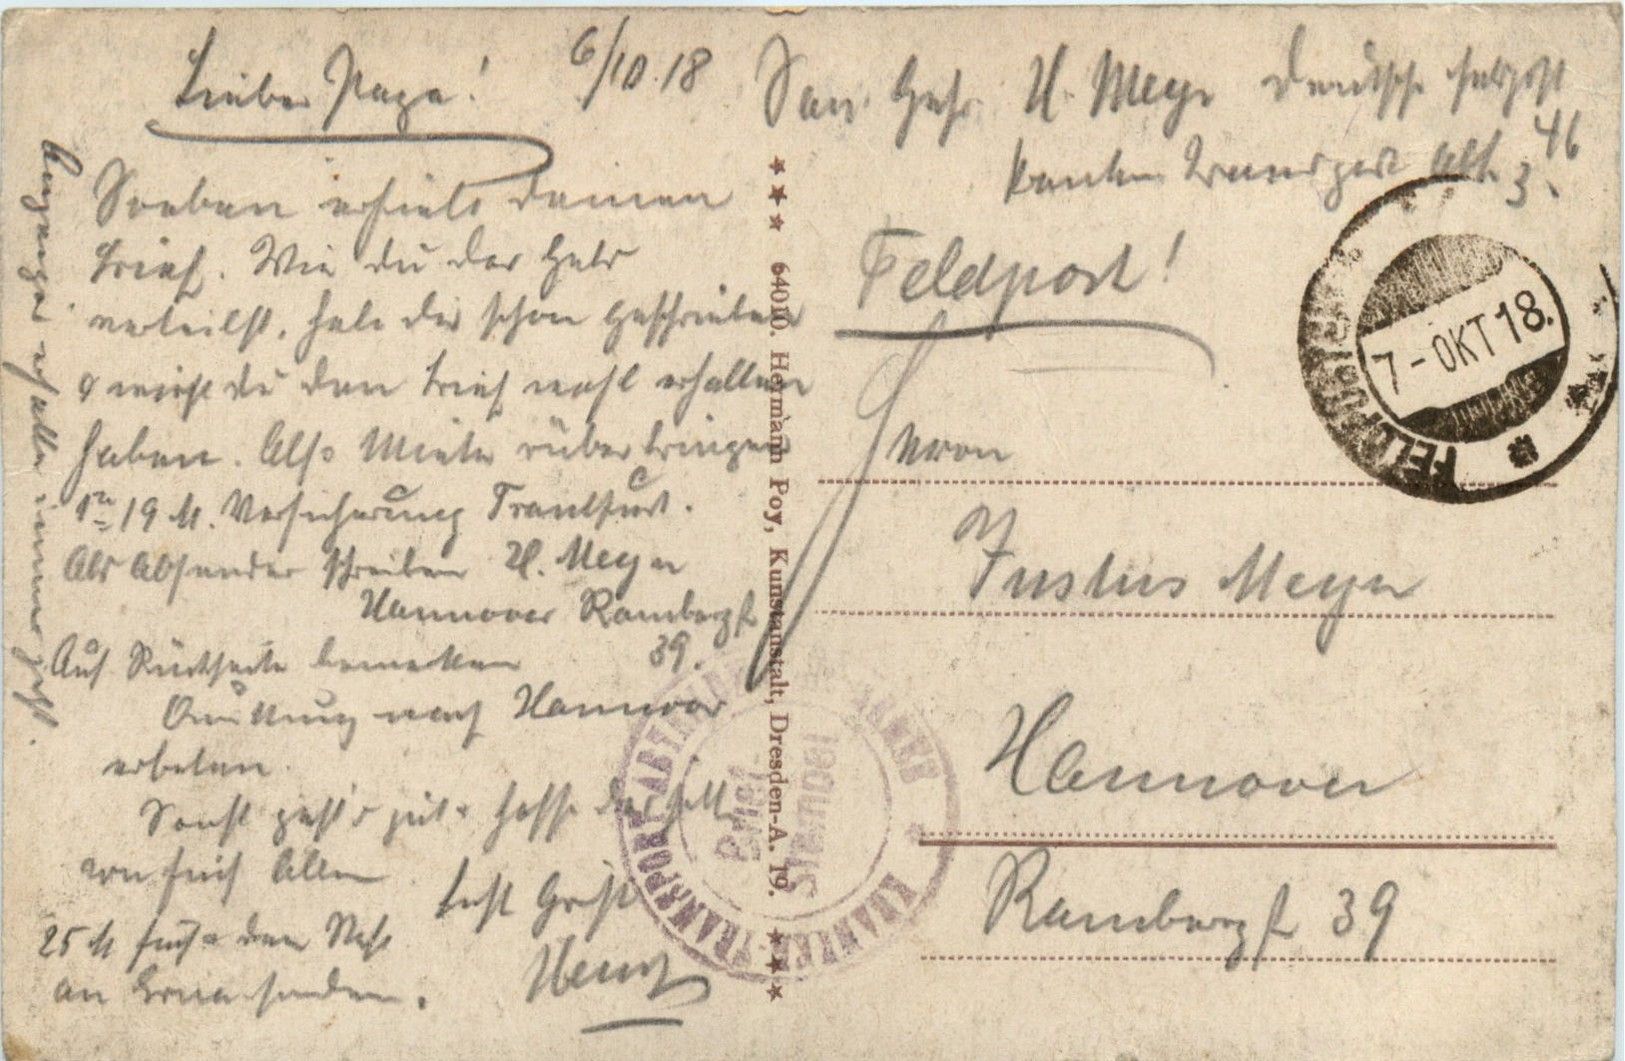 6/10.18
Lieber Papa!
Soeben erhielt deinen
Brief. Wie du das Geld
verteilst, habe dir schon geschrieben
& wirst du den Brief wohl erhalten
haben. Also Miete rüberbringen
19 M. Versicherung Frankfurt.
Als Absender schreiben H. Meyer
Hannover Rambergst
39.
Auf Rückseite bemerken
Quittung nach Hannover
erbeten.
Sonst geht's gut & hoffe dasselbe
von Euch Allen
25 M für den
an Erna senden.
Best Gruß
Heinz
San. Gefr. H. Meyer Deutsche Feldpost
46
Kranken Transport Abt. 3.
Feldpost!
Herrn
Justus Meyer
Hannover
Rambergst 39
FELDPOST
7-OKT 18.
★★★ 64010. Hermann Poy, Kunstanstalt, Dresden-A. 19. ★★★
KRANKEN-TRANSPORT-ABTEILUNG
Brief
Stempel